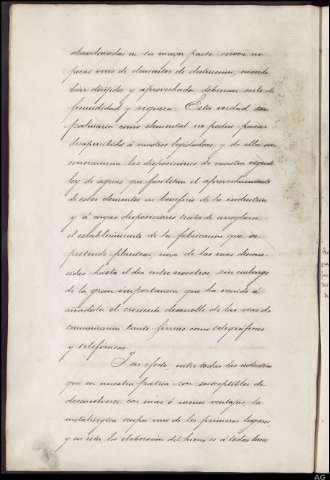 abandonadas en su mayor parte sirven no
pocas veces de elementos de destruccion, cuando
bien dirijidas y aprovechadas debieran serlo de
fecundidad y riqueza. Esta verdad tan
como elemental no podia pasar
desapercibida á nuestros legisladores, y de ello son
las disposiciones de nuestra vigente
ley de aguas que facilitan el aprovechamiento
de estos elementos en beneficio de la industria
y á cuyas disposiciones trata de arreglarse
el establecimiento de la fabricacion que se
pretende plantear, una de las mas
hasta el dia entre nosotros sin embargo
de la gran importancia que ha venido á
añadirla el creciente desarrollo de las vias de
comunicacion tanto ferreas como telegráficas
y telefónicas.
En efecto, entre todas las industrias
que en nuestra patria son susceptibles de
desarrollarse con mas ó menos ventajas, la
metalúrgica ocupa uno de los primeros lugares
y en esta, la elaboracion del hierro es á todas luces
AG